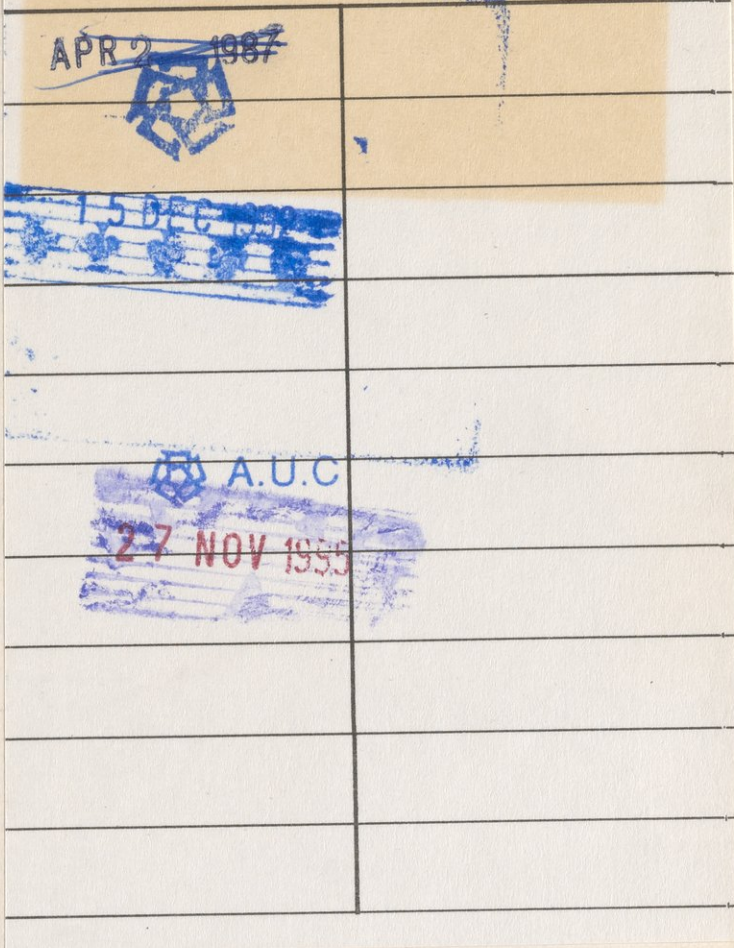 APR 2 1987
15 DEC
A.U.C
27 NOV 1995